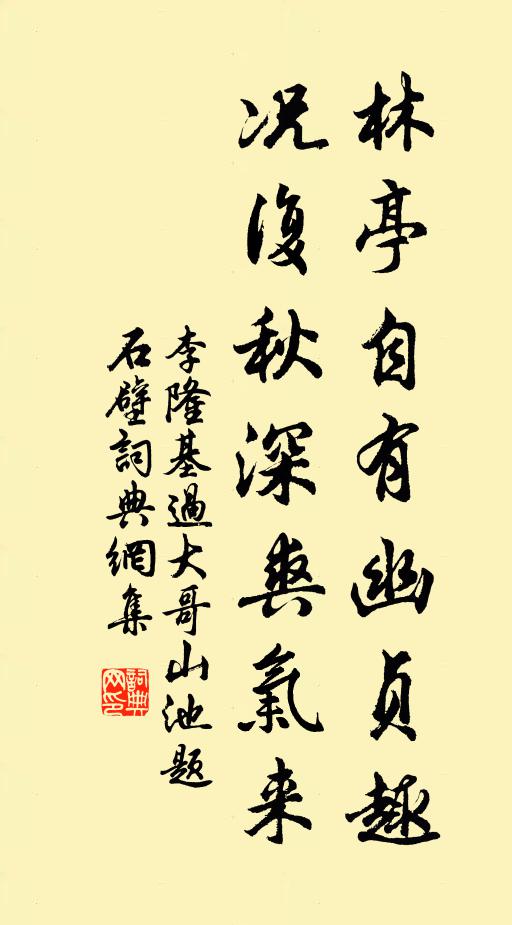 林亭自有幽貞趣
况復秋深爽氣来
李隆基過大哥山池题
石壁詞典網集
詞典网印